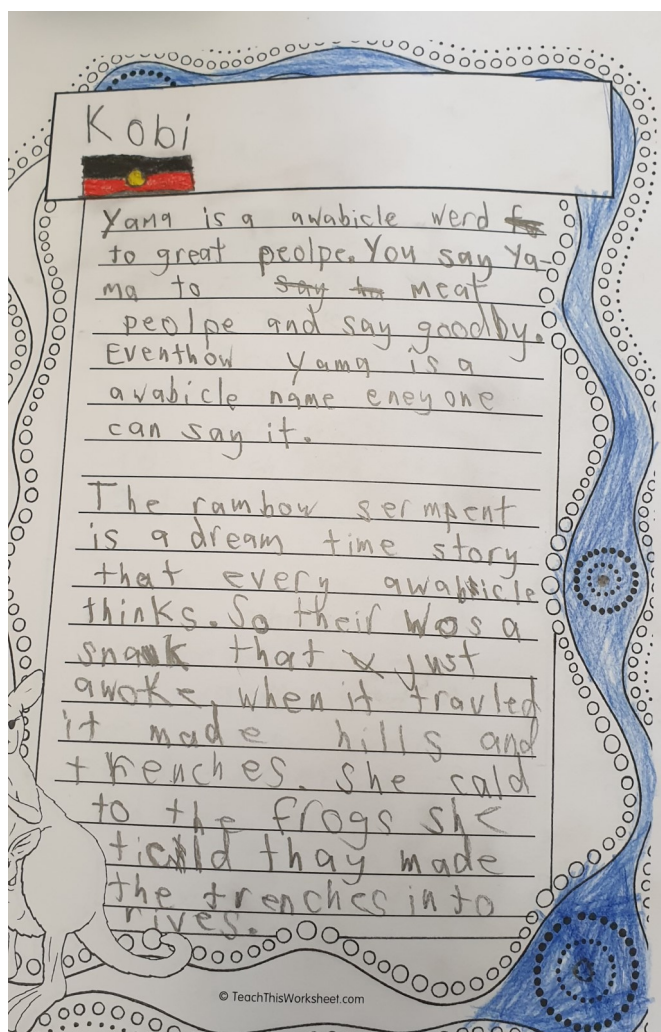 Kobi
Yama is a awabicle werd
to great peolpe. You say Ya-
ma to say to meat
peolpe and say goodby.
Eventhow yama is a
awabicle name eneyone
can say it.
The rambow sermpent
is a dream time story
that every awabicle
thinks. So their wos a
snauk that just
awoke, when it travled
it made hills and
trenches. She cald
to the frogs she
tickld thay made
the trenches into
rives.
© TeachThisWorksheet.com